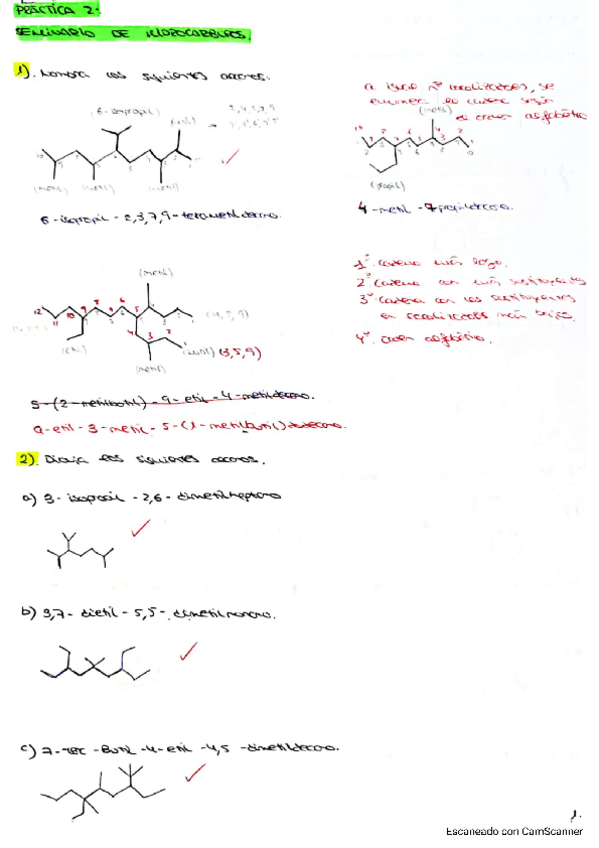 PRÁCTICA 2:
SEMINARIO DE HIDROCARBUROS.
1). Nombra los siguientes alcanos.
a igual nº localizadores, se
enumera la cadena según
el orden alfabético
(6-isopropil)
(metil)
(metil) (metil) (metil)
6-isopropil-2,3,7,9-tetrametildecano.
(metil)
(propil)
4-metil-7-propildecano.
(metil)
(etil)
(metil)
(3,5,9)
1º cadena más larga.
2º cadena con más sustituyentes
3º cadena con los sustituyentes
en localizadores más bajos.
4º orden alfabético.
5-(2-metilbutil)-9-etil-4-metildecano.
9-etil-3-metil-5-(1-metilbutil)dodecano.
2). Dibuja los siguientes alcanos.
a) 3-isopropil-2,6-dimetilheptano
b) 3,7-dietil-5,5-dimetilnonano.
c) 7-terc-Butil-4-etil-4,5-dimetildecano.
1.
Escaneado con CamScanner